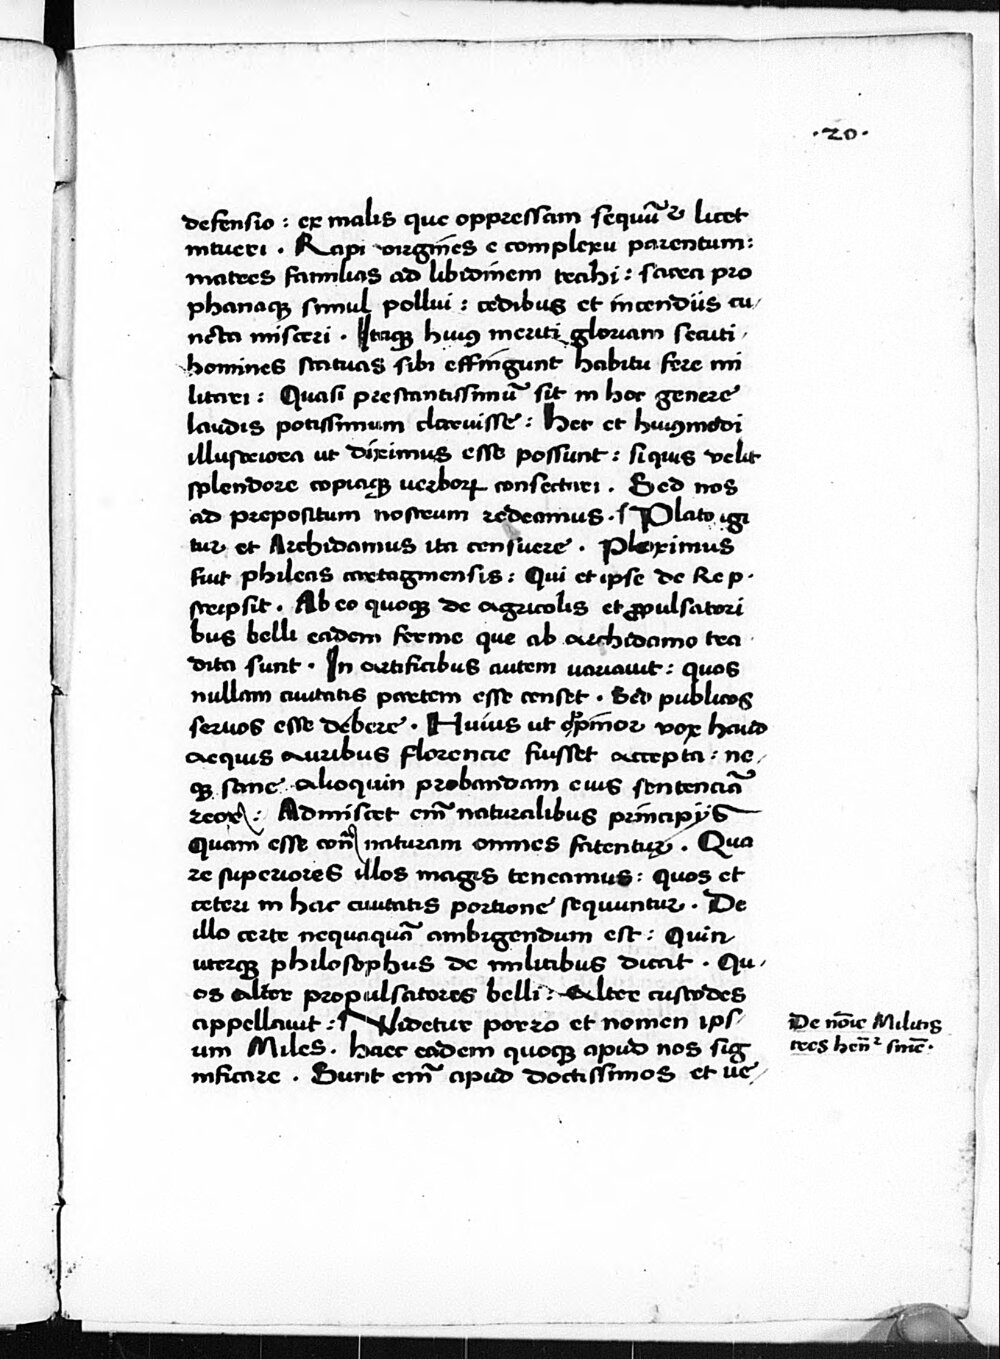 ·20·
defensio : ex malis que oppressam sequũtꝛ licet
intueri . Rapi virgines e complexu parentum :
matres familias ad libidinem trahi : sacra pro
phanaqꝫ simul pollui : cedibus et incendiis cu/
ncta misceri . Itaqꝫ huiꝰ meriti gloriam secuti/
homines statuas sibi effingunt habitu fere mi
litari : Quasi prestantissimũ sit in hoc genere
laudis potissimum claruisse : Hec et huiꝰmodi
illustriora ut diximus esse possunt : siquis velit
splendore copiaqꝫ uerborꝝ consectari . Sed nos
ad propositum nostrum redeamus . Plato igi
tur et Archidamus ita censuere . Proximus
fuit phileas cartaginensis : Qui et ipse de Re p.
scripsit . Ab eo quoqꝫ de agricolis et ꝓpulsatori
bus belli eadem ferme que ab archidamo tra
dita sunt . In artificibus autem uariauit : quos
nullam ciuitatis partem esse censet . Sed publicos
seruos esse debere . Huius ut opinor vox haud
aequis auribus florencie fuisset accepta : ne/
qꝫ sane alioquin probandam eius sentenciã
reor : Admiscet em̃ naturalibus principijs
Quam esse coñ naturam omnes fatentur . Qua
re superiores illos magis teneamus : quos et
ceteri in hac ciuitatis portione sequuntur . De
illo certe nequaquã ambigendum est : Quin
uterqꝫ philosophus de militibus dicat . Qu/
os alter propulsatores belli : alter custodes
appellauit : Videtur porro et nomen ips/
um Miles . haec eadem quoqꝫ apud nos sig
nificare . Sunt em̃ apud doctissimos et ue/
De nõie Militis